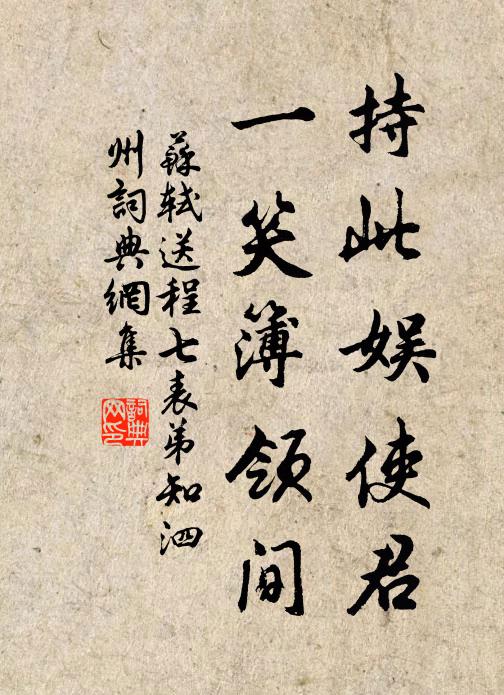 持此娱使君
一笑簿領間
蘇軾送程七表弟知泗
州詞典網集
詞典
网印